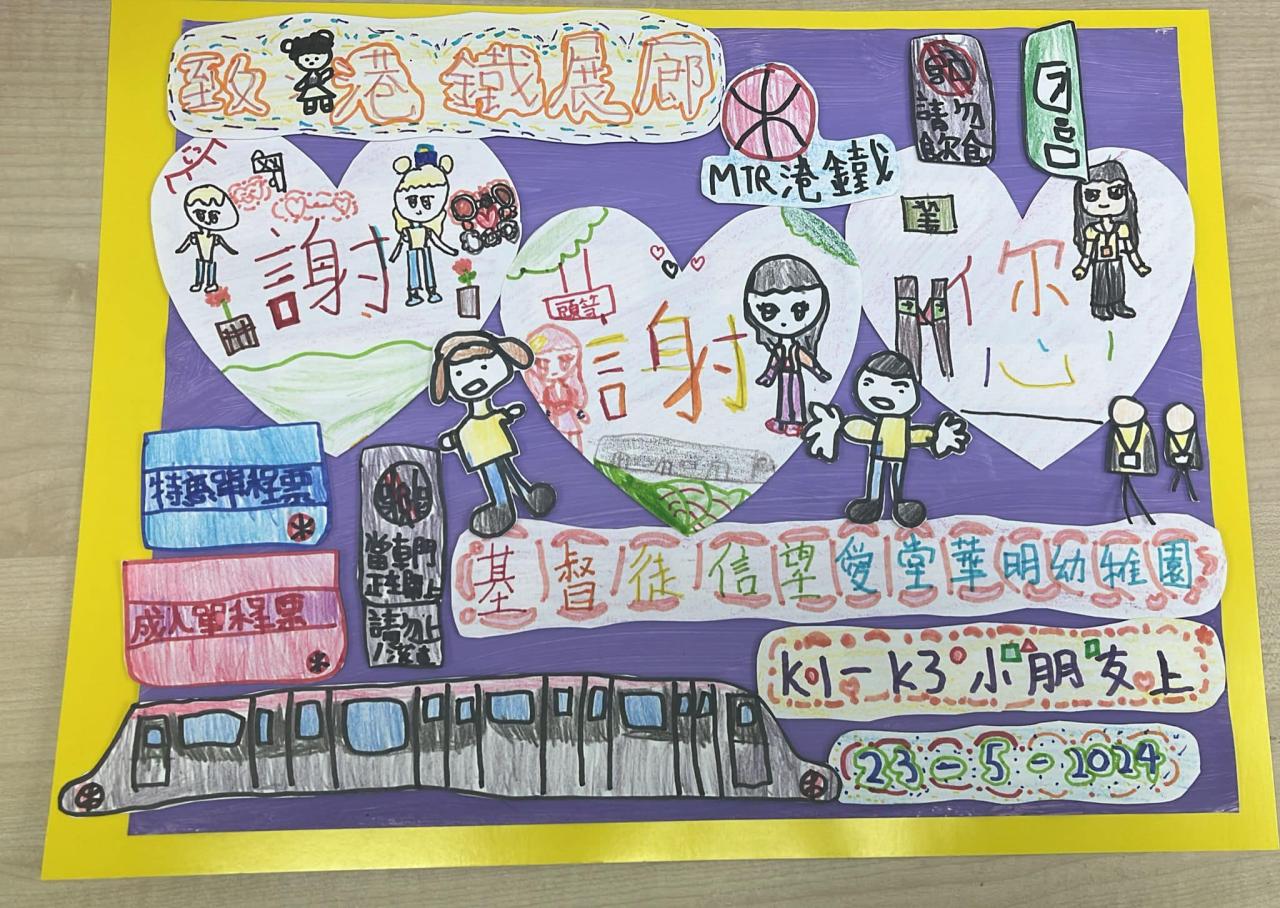 致港鐵展廊
MTR港鐵
請勿
飲食
出口
謝
謝
您
頭等
特惠單程票
成人單程票
當車門
正在關上
請勿上
基督徒信望愛堂華明幼稚園
K1-K3小朋友上
23-5-2024